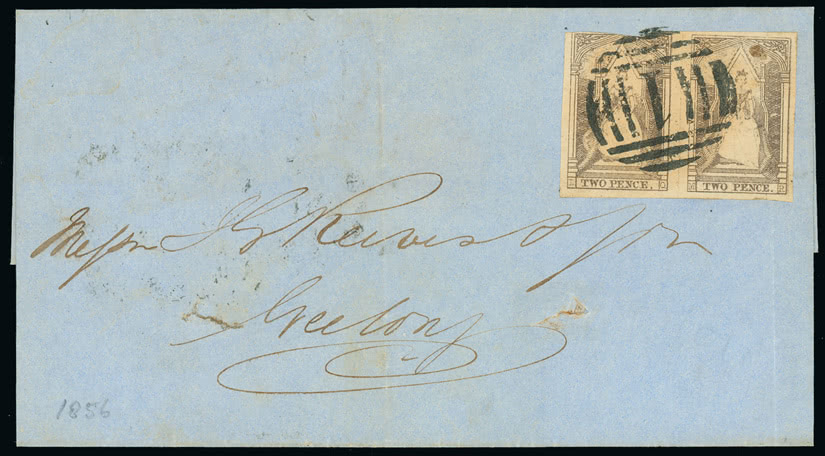 TWO PENCE. TWO PENCE.
1
Messrs J G Reeves & Son
Geelong
1856